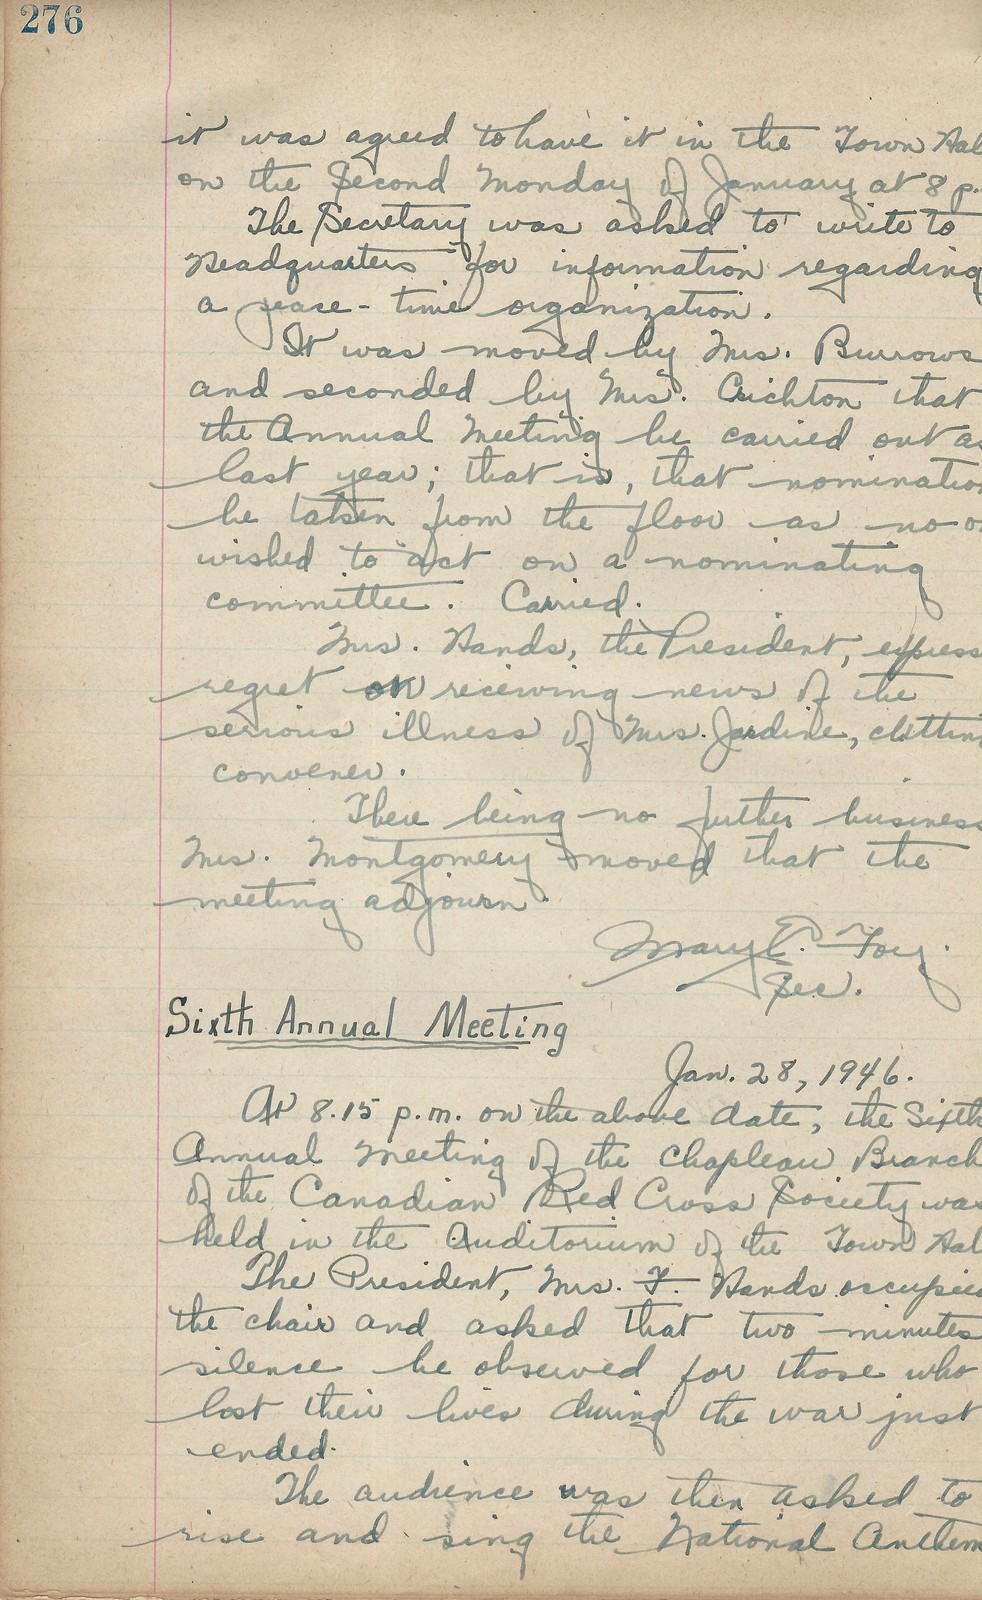 276
it was agreed to have it in the Town Hal
on the Second Monday of January at 8 p.
The Secretary was asked to write to
Headquarters for information regarding
a pease-time organization.
It was moved by Mrs. Burrows
and seconded by Mrs. Crichton that
the Annual Meeting be carried out as
last year; that is, that nomination
be taken from the floor as no o
wished to act on a nominating
committee. Carried.
Mrs. Hands, the President, express
regret on receiving news of the
serious illness of Mrs. Jardine, clttin
convener.
There being no further business
Mrs. Montgomery moved that the
meeting adjourn.
Mary E. Foy.
Sec.
Sixth Annual Meeting
Jan. 28, 1946.
At 8.15 p.m. on the above date, the Sixth
Annual Meeting of the Chapleau Branch
of the Canadian Red Cross Society was
held in the Auditorium of the Town Hal
The President, Mrs. F. Hands occupied
the chair and asked that two minutes
silence be observed for those who
lost their lives during the war just
ended.
The audience was then asked to
rise and sing the National Anthem